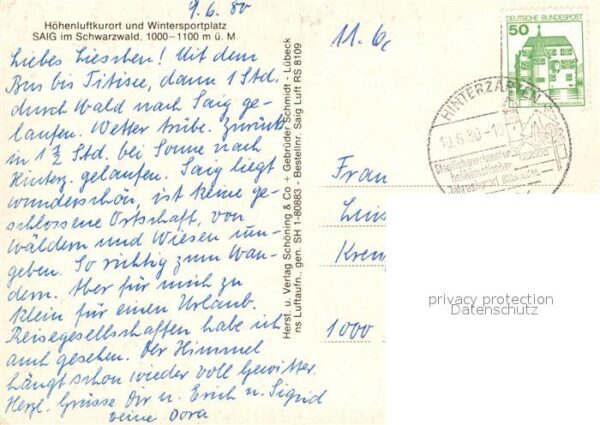 9.6.80
Höhenluftkurort und Wintersportplatz
SAIG im Schwarzwald, 1000–1100 m ü. M.
Liebes Lieschen! Mit dem
Bus bis Titisee, dann 1 Std.
durch Wald nach Saig ge-
laufen. Wetter trübe. Zurück
in 1 ½ Std. bei Sonne nach
Hinterz. gelaufen. Saig liegt
wunderschön, ist keine ge-
schlossene Ortschaft, von
Wäldern und Wiesen um-
geben. So richtig zum Wan-
dern. Aber für mich zu
klein für einen Urlaub.
Reisegesellschaften habe ich
auch gesehen. Der Himmel
hängt schon wieder voll Gewitter.
Herzl. Grüsse Dir u. Erich u. Sigrid
deine Dora
Herst. u. Verlag Schöning & Co + Gebrüder Schmidt - Lübeck
ns Luftaufn., gen. SH 1-80883 - Bestellnr. Saig Luft RS 8109
11.6
DEUTSCHE BUNDESPOST
50
HINTERZARTEN
10.6.80-1
Staatlich anerkannter
heilklimatischer
Frau
Luis
Krem
1000
privacy protection
Datenschutz